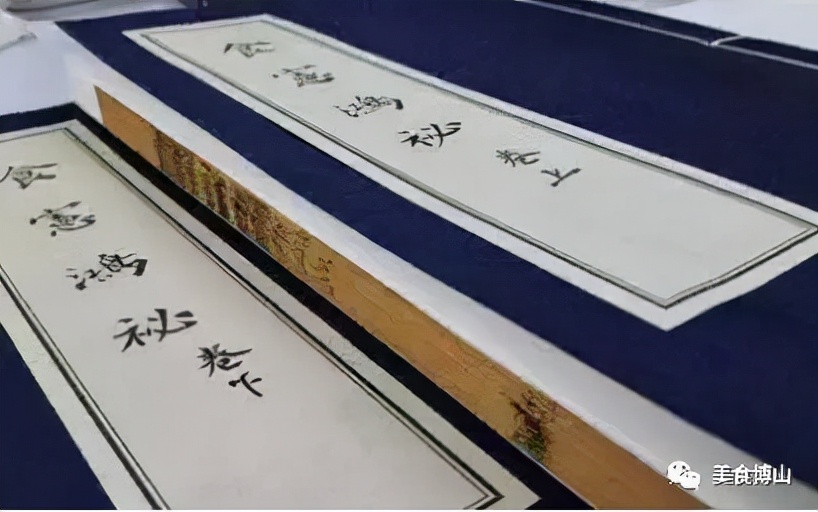 食憲鴻祕 卷上
食憲鴻祕 卷下
美食博山